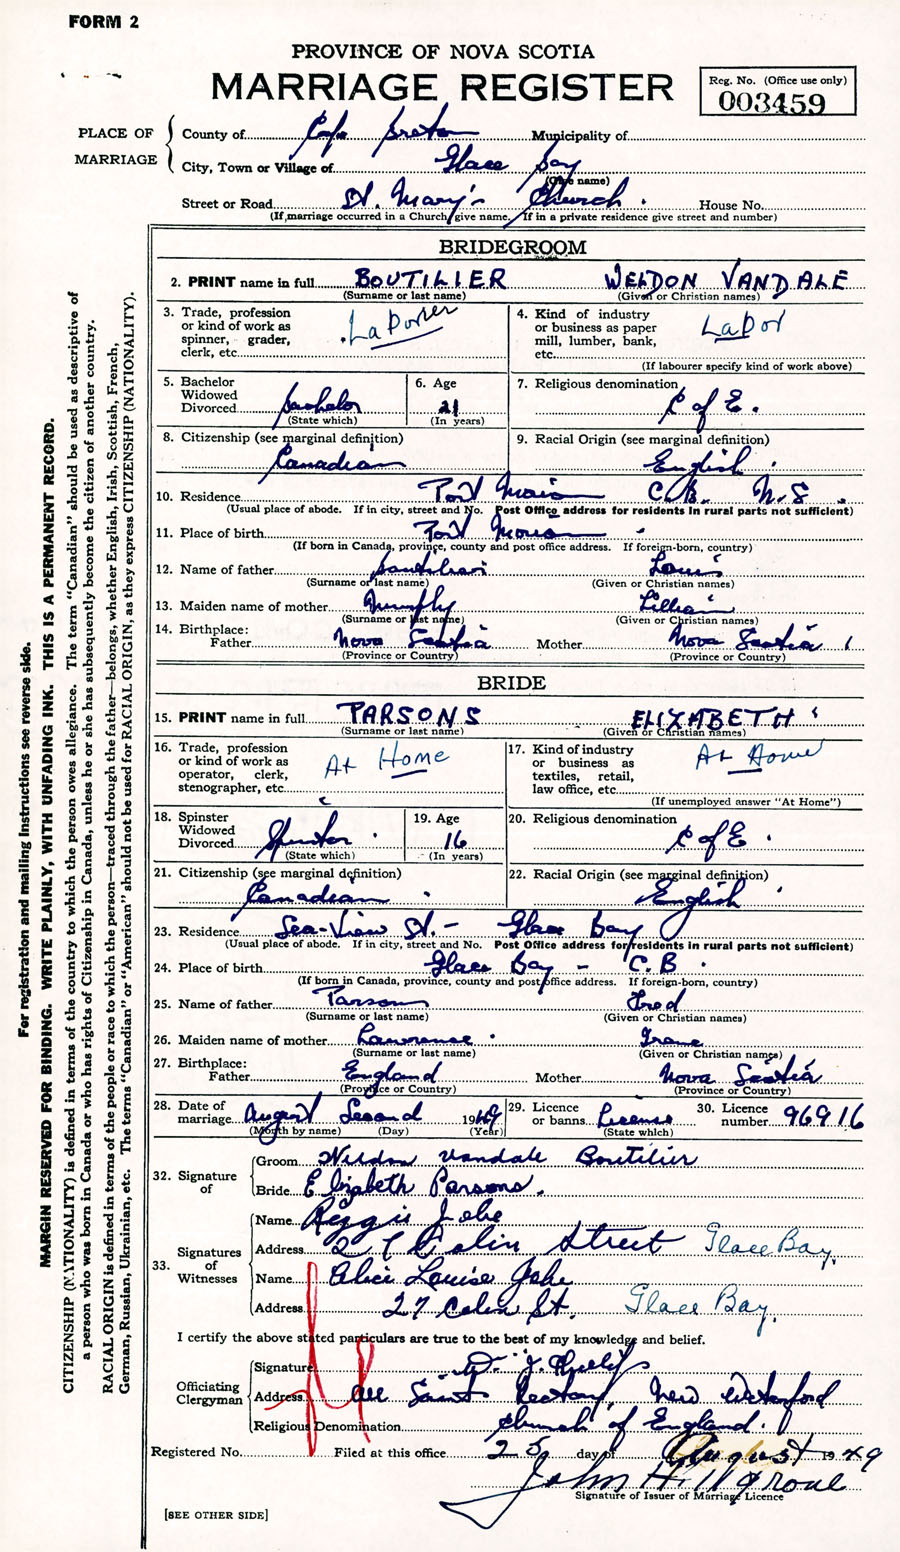 FORM 2
PROVINCE OF NOVA SCOTIA
MARRIAGE REGISTER
Reg. No. (Office use only)
003459
PLACE OF MARRIAGE
County of Cape Breton Municipality of
City, Town or Village of Glace Bay
(Give name)
Street or Road St. Mary's Church. House No.
(If marriage occurred in a Church, give name. If in a private residence give street and number)
BRIDEGROOM
2. PRINT name in full BOUTILIER WELDON VANDALE
(Surname or last name) (Given or Christian names)
3. Trade, profession or kind of work as spinner, grader, clerk, etc. Laborer
4. Kind of industry or business as paper mill, lumber, bank, etc. Labor
(If labourer specify kind of work above)
5. Bachelor Widowed Divorced Bachelor
(State which)
6. Age 21
(In years)
7. Religious denomination C of E.
8. Citizenship (see marginal definition) Canadian
9. Racial Origin (see marginal definition) English.
10. Residence Port Morien C.B. N.S.
(Usual place of abode. If in city, street and No. Post Office address for residents in rural parts not sufficient)
11. Place of birth Port Morien
(If born in Canada, province, county and post office address. If foreign-born, country)
12. Name of father Boutilier Louis
(Surname or last name) (Given or Christian names)
13. Maiden name of mother Murphy Lillian
(Surname or last name) (Given or Christian names)
14. Birthplace: Father Nova Scotia Mother Nova Scotia
(Province or Country) (Province or Country)
BRIDE
15. PRINT name in full PARSONS ELIZABETH
(Surname or last name) (Given or Christian names)
16. Trade, profession or kind of work as operator, clerk, stenographer, etc. At Home
17. Kind of industry or business as textiles, retail, law office, etc. At Home
(If unemployed answer "At Home")
18. Spinster Widowed Divorced Spinster.
(State which)
19. Age 16
(In years)
20. Religious denomination C of E.
21. Citizenship (see marginal definition) Canadian.
22. Racial Origin (see marginal definition) English.
23. Residence Sea-View St. - Glace Bay
(Usual place of abode. If in city, street and No. Post Office address for residents in rural parts not sufficient)
24. Place of birth Glace Bay - C.B.
(If born in Canada, province, county and post office address. If foreign-born, country)
25. Name of father Parsons Fred
(Surname or last name) (Given or Christian names)
26. Maiden name of mother Lawrence.
(Surname or last name) (Given or Christian names)
27. Birthplace: Father England Mother Nova Scotia
(Province or Country) (Province or Country)
28. Date of marriage August Second 1949
(Month by name) (Day) (Year)
29. Licence or banns License
(State which)
30. Licence number 96916
32. Signature of
Groom Weldon Vandale Boutilier
Bride Elizabeth Parsons.
33. Signatures of Witnesses
Name Reggie Johe
Address 27 Colin Street Glace Bay.
Name Alice Louise Johe
Address 27 Colin St. Glace Bay.
I certify the above stated particulars are true to the best of my knowledge and belief.
Officiating Clergyman
Signature J. Phillips
Address All Saints Rectory, New Waterford
Religious Denomination Church of England.
Registered No. Filed at this office 25 day of August 1949
John H.
Signature of Issuer of Marriage Licence
[SEE OTHER SIDE]
For registration and mailing instructions see reverse side.
MARGIN RESERVED FOR BINDING. WRITE PLAINLY, WITH UNFADING INK. THIS IS A PERMANENT RECORD.
CITIZENSHIP (NATIONALITY) is defined in terms of the country to which the person owes allegiance. The term "Canadian" should be used as descriptive of
a person who was born in Canada or who has rights of Citizenship in Canada, unless he or she has subsequently become the citizen of another country.
RACIAL ORIGIN is defined in terms of the people or race to which the person—traced through the father—belongs, whether English, Irish, Scottish, French,
German, Russian, Ukrainian, etc. The terms "Canadian" or "American" should not be used for RACIAL ORIGIN, as they express CITIZENSHIP (NATIONALITY).